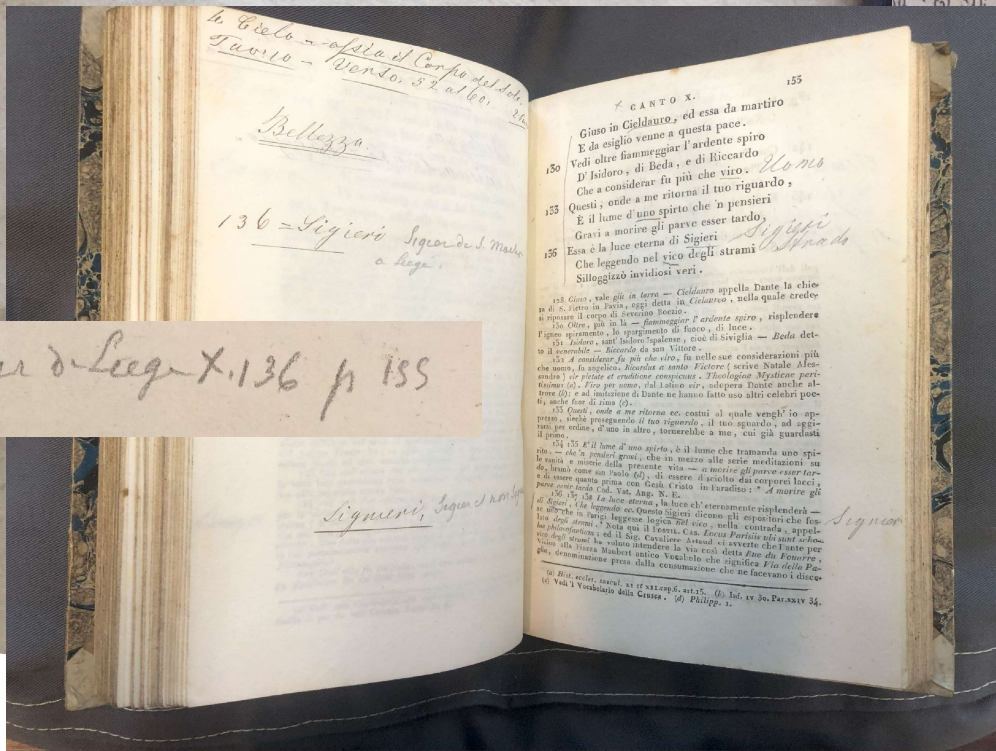 le Cielo - ossia il Corpo del Sole.
Taurio - Verso. 52 al 60.
Bellezza.
136 = Sigieri Sigier de S.
a Liege.
de Liege X. 136 p 155
Signieri, Sigier et non
155
+ CANTO X.
Giuso in Cieldauro, ed essa da martiro
E da esiglio venne a questa pace.
130 Vedi oltre fiammeggiar l'ardente spiro
D' Isidoro, di Beda, e di Riccardo
Che a considerar fu più che viro. Uomo
133 Questi, onde a me ritorna il tuo riguardo,
È il lume d'uno spirto che 'n pensieri
Gravi a morire gli parve esser tardo,
136 Essa è la luce eterna di Sigieri Sigieri
Che leggendo nel vico degli strami Strada
Sillogizzò invidiosi veri.
128 Giuso, vale giù in terra — Cieldauro appella Dante la chie-
sa di S. Pietro in Pavia, oggi detta in Cielaureo, nella quale crede-
si riposare il corpo di Severino Boezio.
130 Oltre, più in là — fiammeggiar l'ardente spiro, risplendere
l'igneo spiramento, lo spargimento di fuoco, di luce.
131 Isidoro, sant' Isidoro Ispalense, cioè di Siviglia — Beda det-
to il venerabile — Riccardo da san Vittore.
132 A considerar fu più che viro, fu nelle sue considerazioni più
che uomo, fu angelico. Ricardus a sancto Victore (scrive Natale Ales-
sandro) vir pietate et eruditione conspicuus. Theologiae Mysticae peri-
tissimus (a). Viro per uomo, dal Latino vir, adopera Dante anche al-
trove (b); e ad imitazione di Dante ne hanno fatto uso altri celebri poe-
ti, anche fuor di rima (c).
133 Questi, onde a me ritorna ec. costui al quale vengh' io ap-
presso, sicchè proseguendo il tuo riguardo, il tuo sguardo, ad aggi-
rarsi per ordine, d'uno in altro, tornerebbe a me, cui già guardasti
il primo.
134 135 E il lume d' uno spirto, è il lume che tramanda uno spi-
rito. — che 'n pensieri gravi, che in mezzo alle serie meditazioni su
le vanità e miserie della presente vita — a morire gli parve esser tar-
do, bramò come san Paolo (d), di essere disciolto dai corporei lacci,
e di essere quanto prima con Gesù Cristo in Paradiso: * A morire gli
parve venir tardo Cod. Vat. Ang. N. E.
136 137 138 La luce eterna, la luce ch' eternamente risplenderà —
di Sigieri, Che leggendo ec. Questo Sigieri dicono gli espositori che fos- Signier
se uno che in Parigi leggesse logica nel vico, nella contrada, appel-
lata degli strami. * Nota qui il Postil. Cas. Locus Parisiis ubi sunt scho-
lae philosophantium; ed il Sig. Cavaliere Artaud ci avverte che Dante per
vico degli strami ha voluto intendere la via così detta Rue du Fouarre,
vicino alla Piazza Maubert antico Vocabolo che significa Via della Pa-
glia, denominazione presa dalla consumazione che ne facevano i disce-
(a) Hist. eccles. saecul. XI et XII cap. 6. art. 15. (b) Inf. IV 30. Par. XXIV 34.
(c) Vedi 'l Vocabolario della Crusca. (d) Philipp. 1.